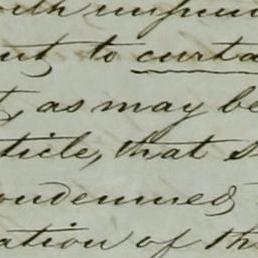 with
ut to curta
, as may be
ticle, that s
ondemned
ation of th